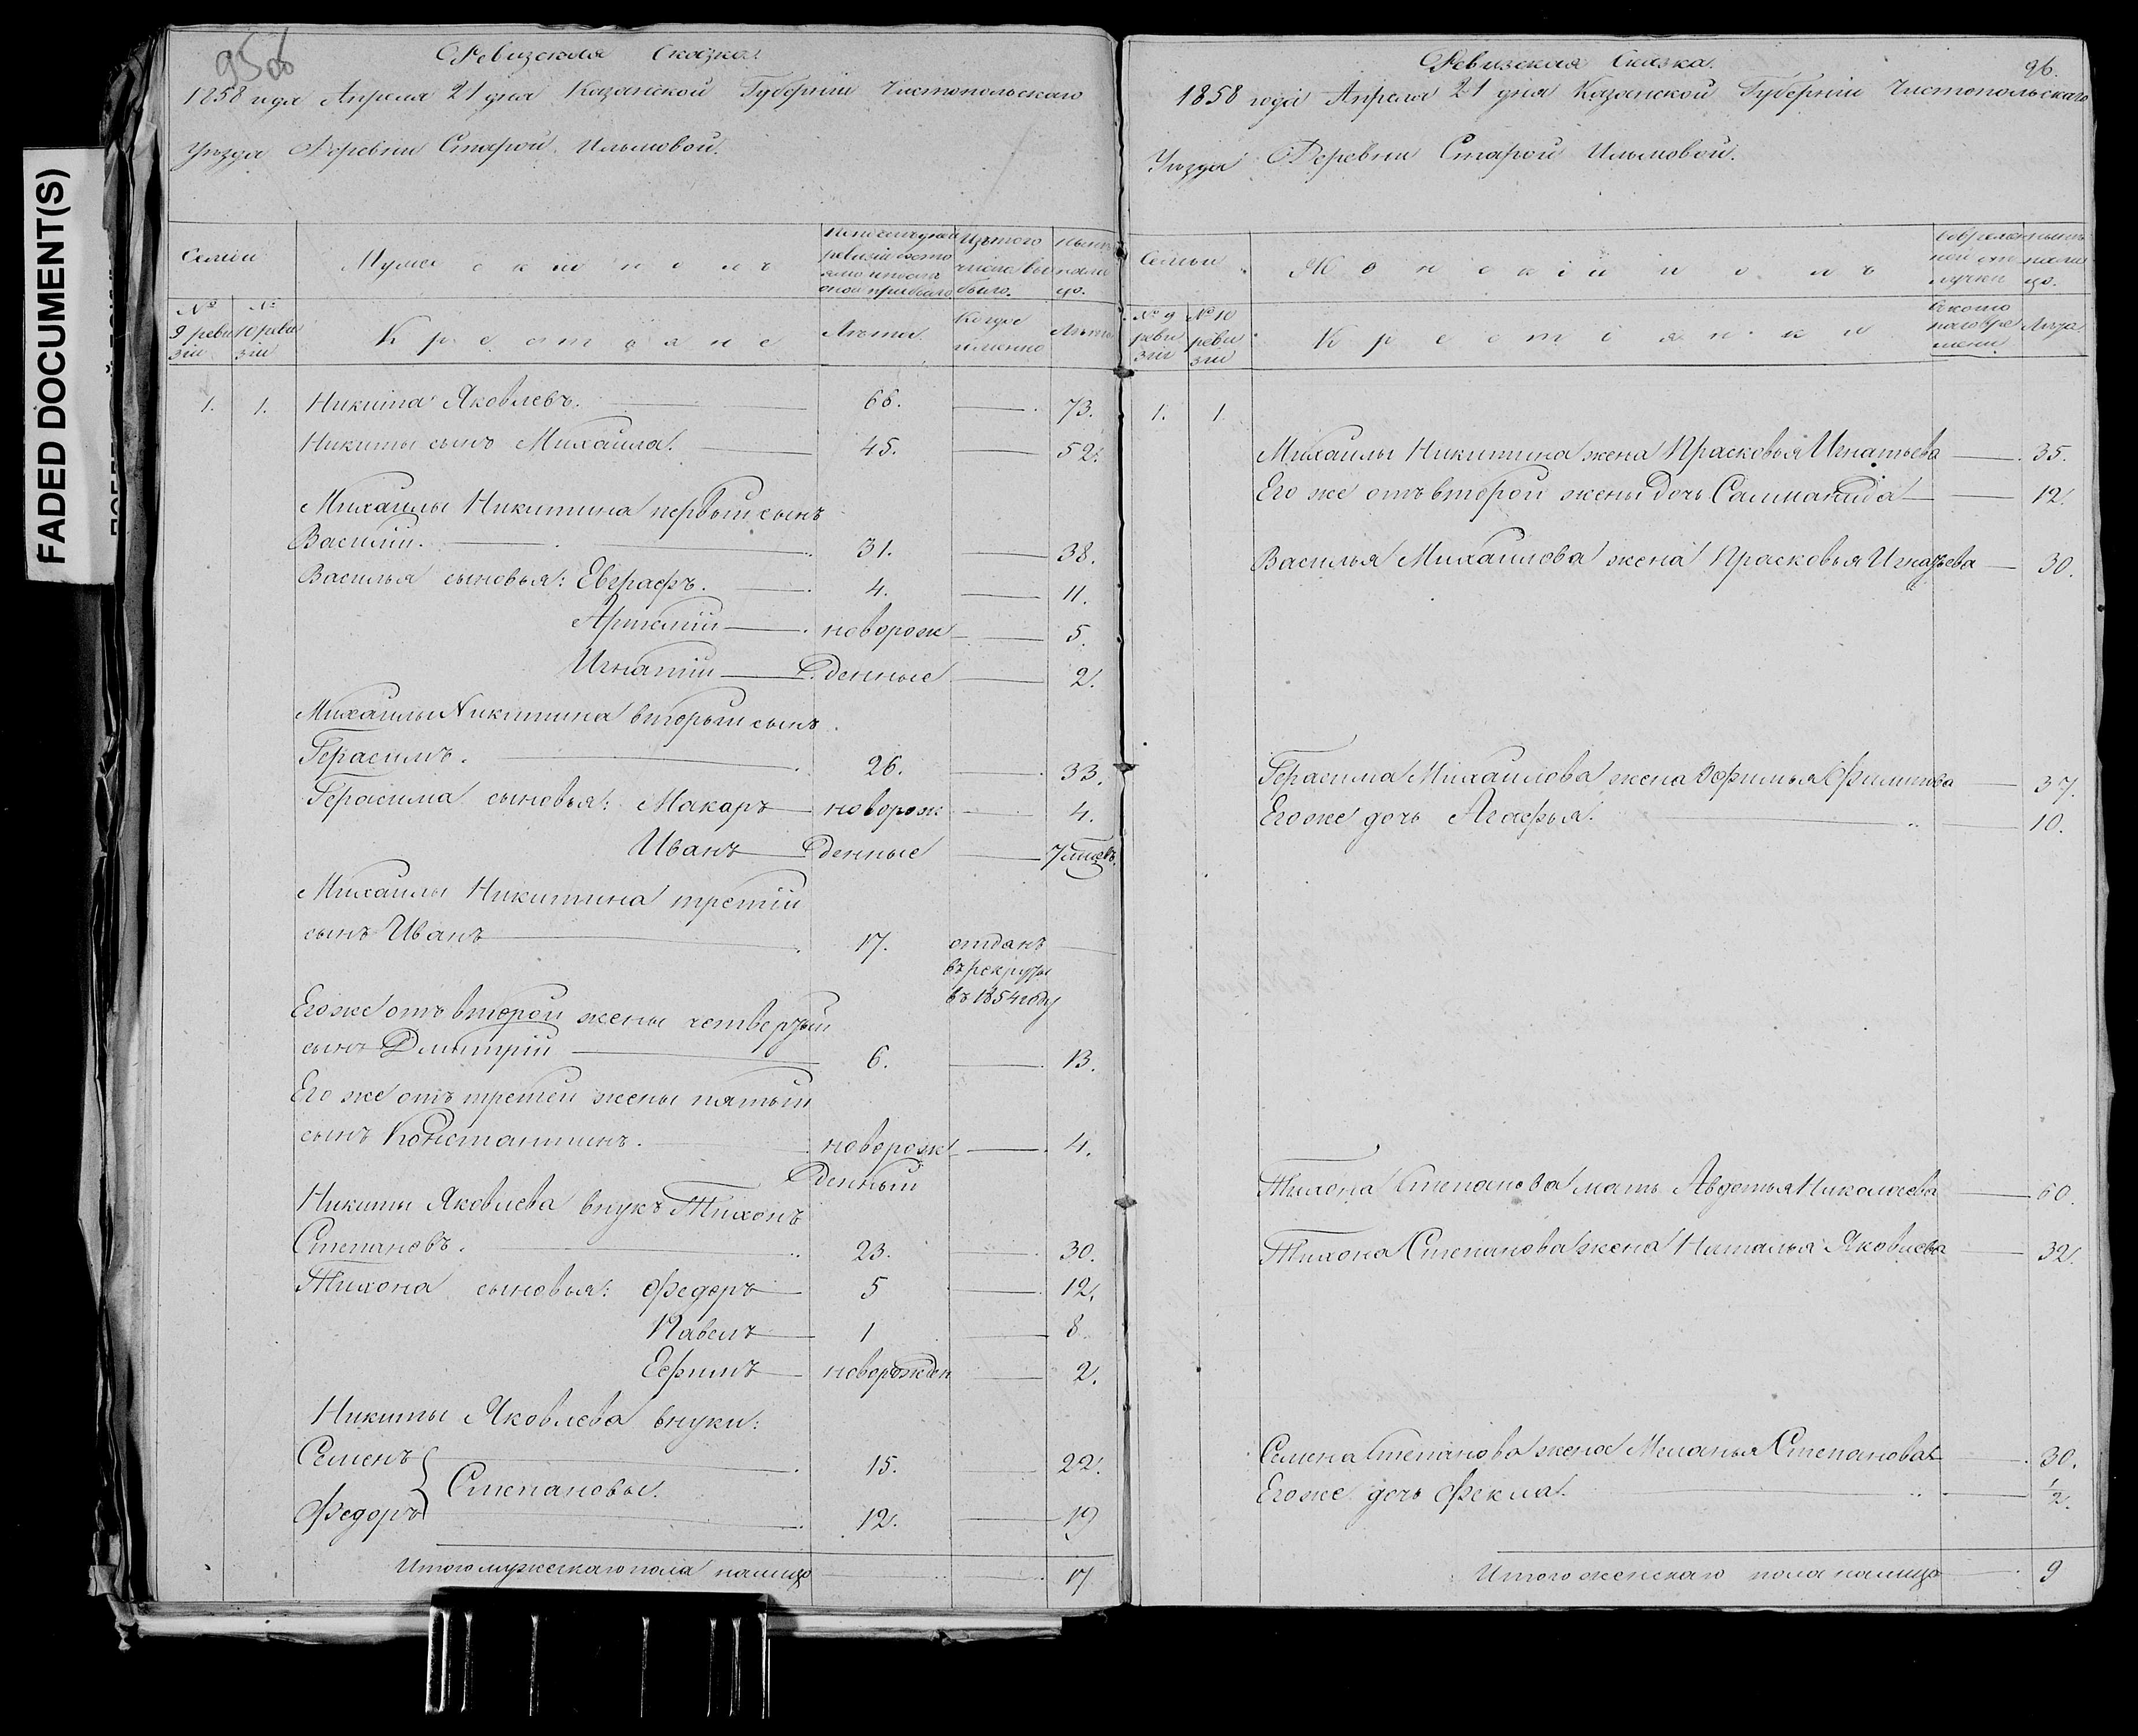 FADED DOCUMENT(S)
95об
Ревизская Сказка.
1858 года Апреля 21 дня Казанской Губернии Чистопольскаго
Уезда Деревни Старой Ильмовой.
Семьи
Мужескій полъ
По последней ревизіи состояло и после оной прибыло.
Изъ того числа выбыло.
Ныне на лицо.
№ 9 ревизіи
№ 10 ревизіи
Крестьяне
Лѣта
Когда именно
Лѣта
1. 1. Никита Яковлевъ. 66. 73.
Никиты сынъ Михайла. 45. 52.
Михайлы Никитина первый сынъ
Василій. 31. 38.
Василья сыновья: Евграфъ. 4. 11.
Артемій новорож 5.
Игнатій денные 2.
Михайлы Никитина вторый сынъ
Герасимъ. 26. 33.
Герасима сыновья: Макаръ новорож 4.
Иванъ денные 7 мѣсъ.
Михайлы Никитина третій
сынъ Иванъ 17. отданъ
въ рекруты
въ 1854 году
Его же отъ второй жены четвертый
сынъ Дмитрій 6. 13.
Его же отъ третей жены пятый
сынъ Константинъ. новорож 4.
денный
Никиты Яковлева внукъ Тихонъ
Степановъ. 23. 30.
Тихона сыновья: Федоръ 5 12.
Павелъ 1 8.
Ефимъ новорожден 2.
Никиты Яковлева внуки:
Семенъ 15. 22.
Степановы.
Федоръ 12. 19
Итого мужескаго пола налицо 17
96.
Ревизская Сказка.
1858 года Апреля 21 дня Казанской Губерніи Чистопольскаго
Уезда Деревни Старой Ильмовой.
Семьи
Женскій полъ
Во временной отлучки
Ныне на лицо.
№ 9 ревизіи
№ 10 ревизіи
Крестьянки
Съ кото
Лѣта
1. 1.
Михайлы Никитина жена Прасковья Игнатьева 35.
Его же отъ второй жены дочь Саломанида 12.
Василья Михайлова жена Прасковья Игнатьева 30.
Герасима Михайлова жена Филипова 37.
Его же дочь Агафья. 10.
Тихона Степанова мать Авдотья Николаева 60.
Тихона Степанова жена Наталья Яковлева 32.
Семена Степанова жена Меланья Степанова 30.
Его же дочь Фекла. 1/2.
Итого женскаго пола налицо 9